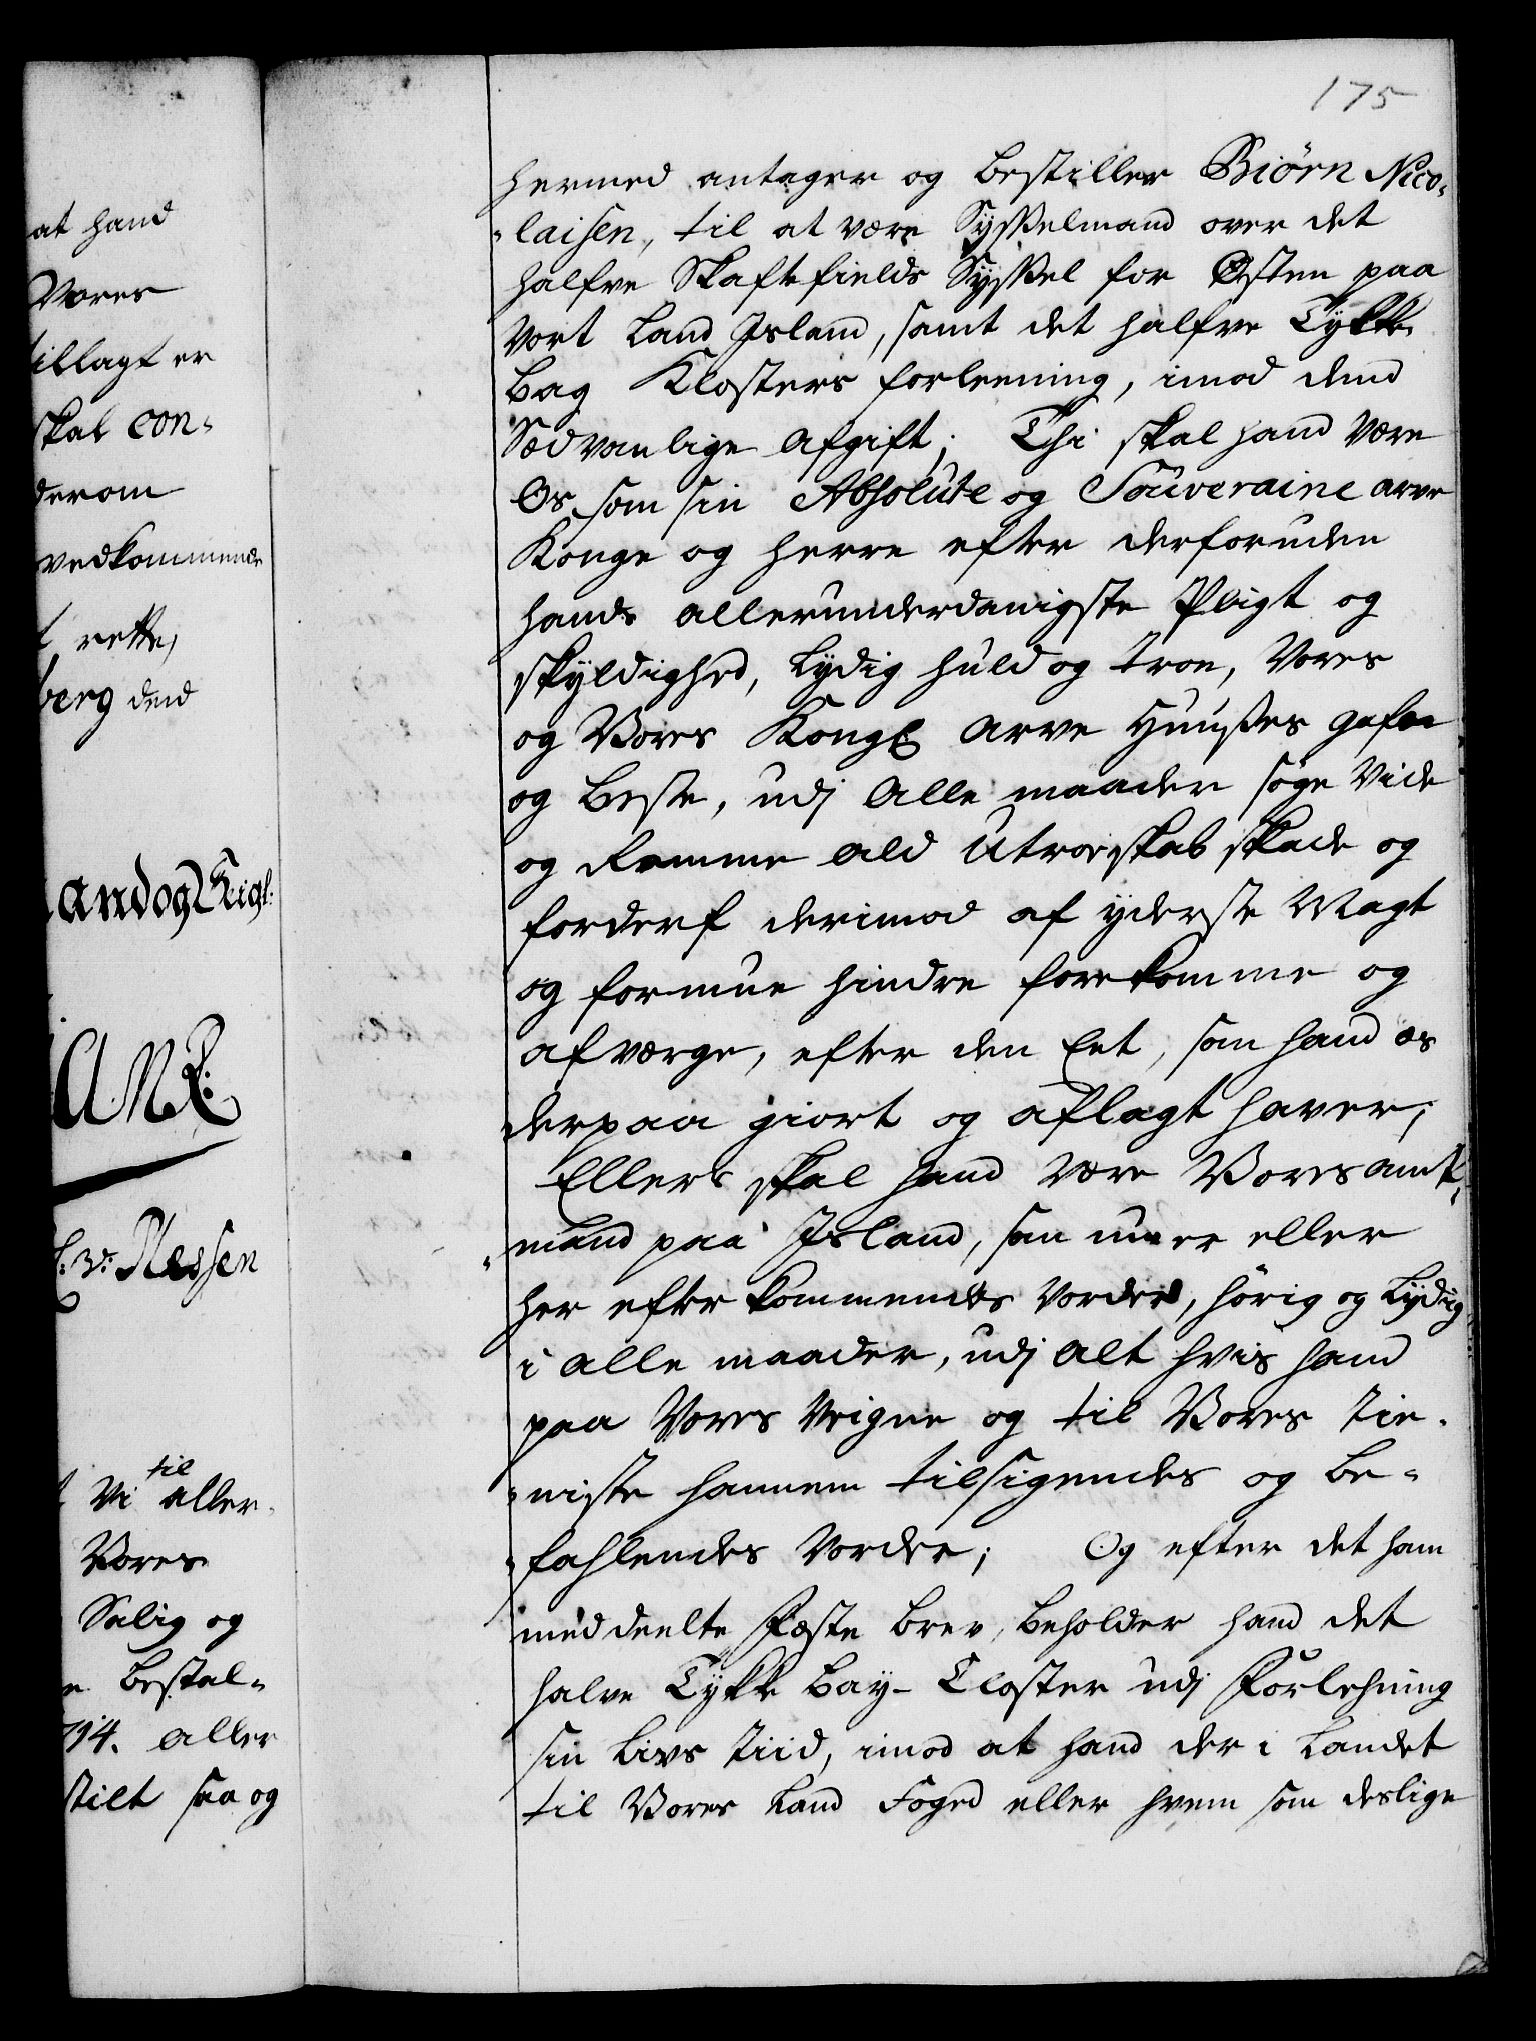 175
hermed antager og bestiller Biörn Nico-
-laisen, til at være Sysselmand over det
halfve Skaftefields Syssel for Østen paa
Vort Land Island, samt det halfve Tykke
Bay Klosters forleening, imod dend
Sædvanlige Afgift; Thi skal hand være
Os som sin Absolute og Souveraine arve
Konge og Herre efter derforuden
hands allerunderdanigste Pligt og
skyldighed, Lydig huld og troe, Vores
og Vores Kongl arve Huuses gafn
og beste, udj Alle maader söge Vide
og Ramme ald Utroeskab skade og
forderf derimod af yderste Magt
og formue hindre forekomme og
afværge, efter den Eet, som hand os
derpaa giort og aflagt haver;
Ellers skal hand være Vores amt-
-mand paa Island, som nu er eller
her efter kommendes vorder, hörig og Lydig
i alle maader, udj alt hvis hand
paa Vores Veigne og til Vores Tie-
-niste hannem tilsigendes og be-
-fahlendes vorder; Og efter det ham
meddeelte Fæste brev, beholder hand det
halve Tykke Bay- Closter udj Forlehning
sin Livs Tiid, imod at hand der i Landet
til Vores Land Foged eller hvem som deslige
at hand
Vores
tillagt er
skal con-
derom
vedkommende
rette,
berg dend
and og Kigl:
AMR:
v: Plessen
til
Vi aller-
Vores
Salig og
Bestal-
714. aller
stilt saa og